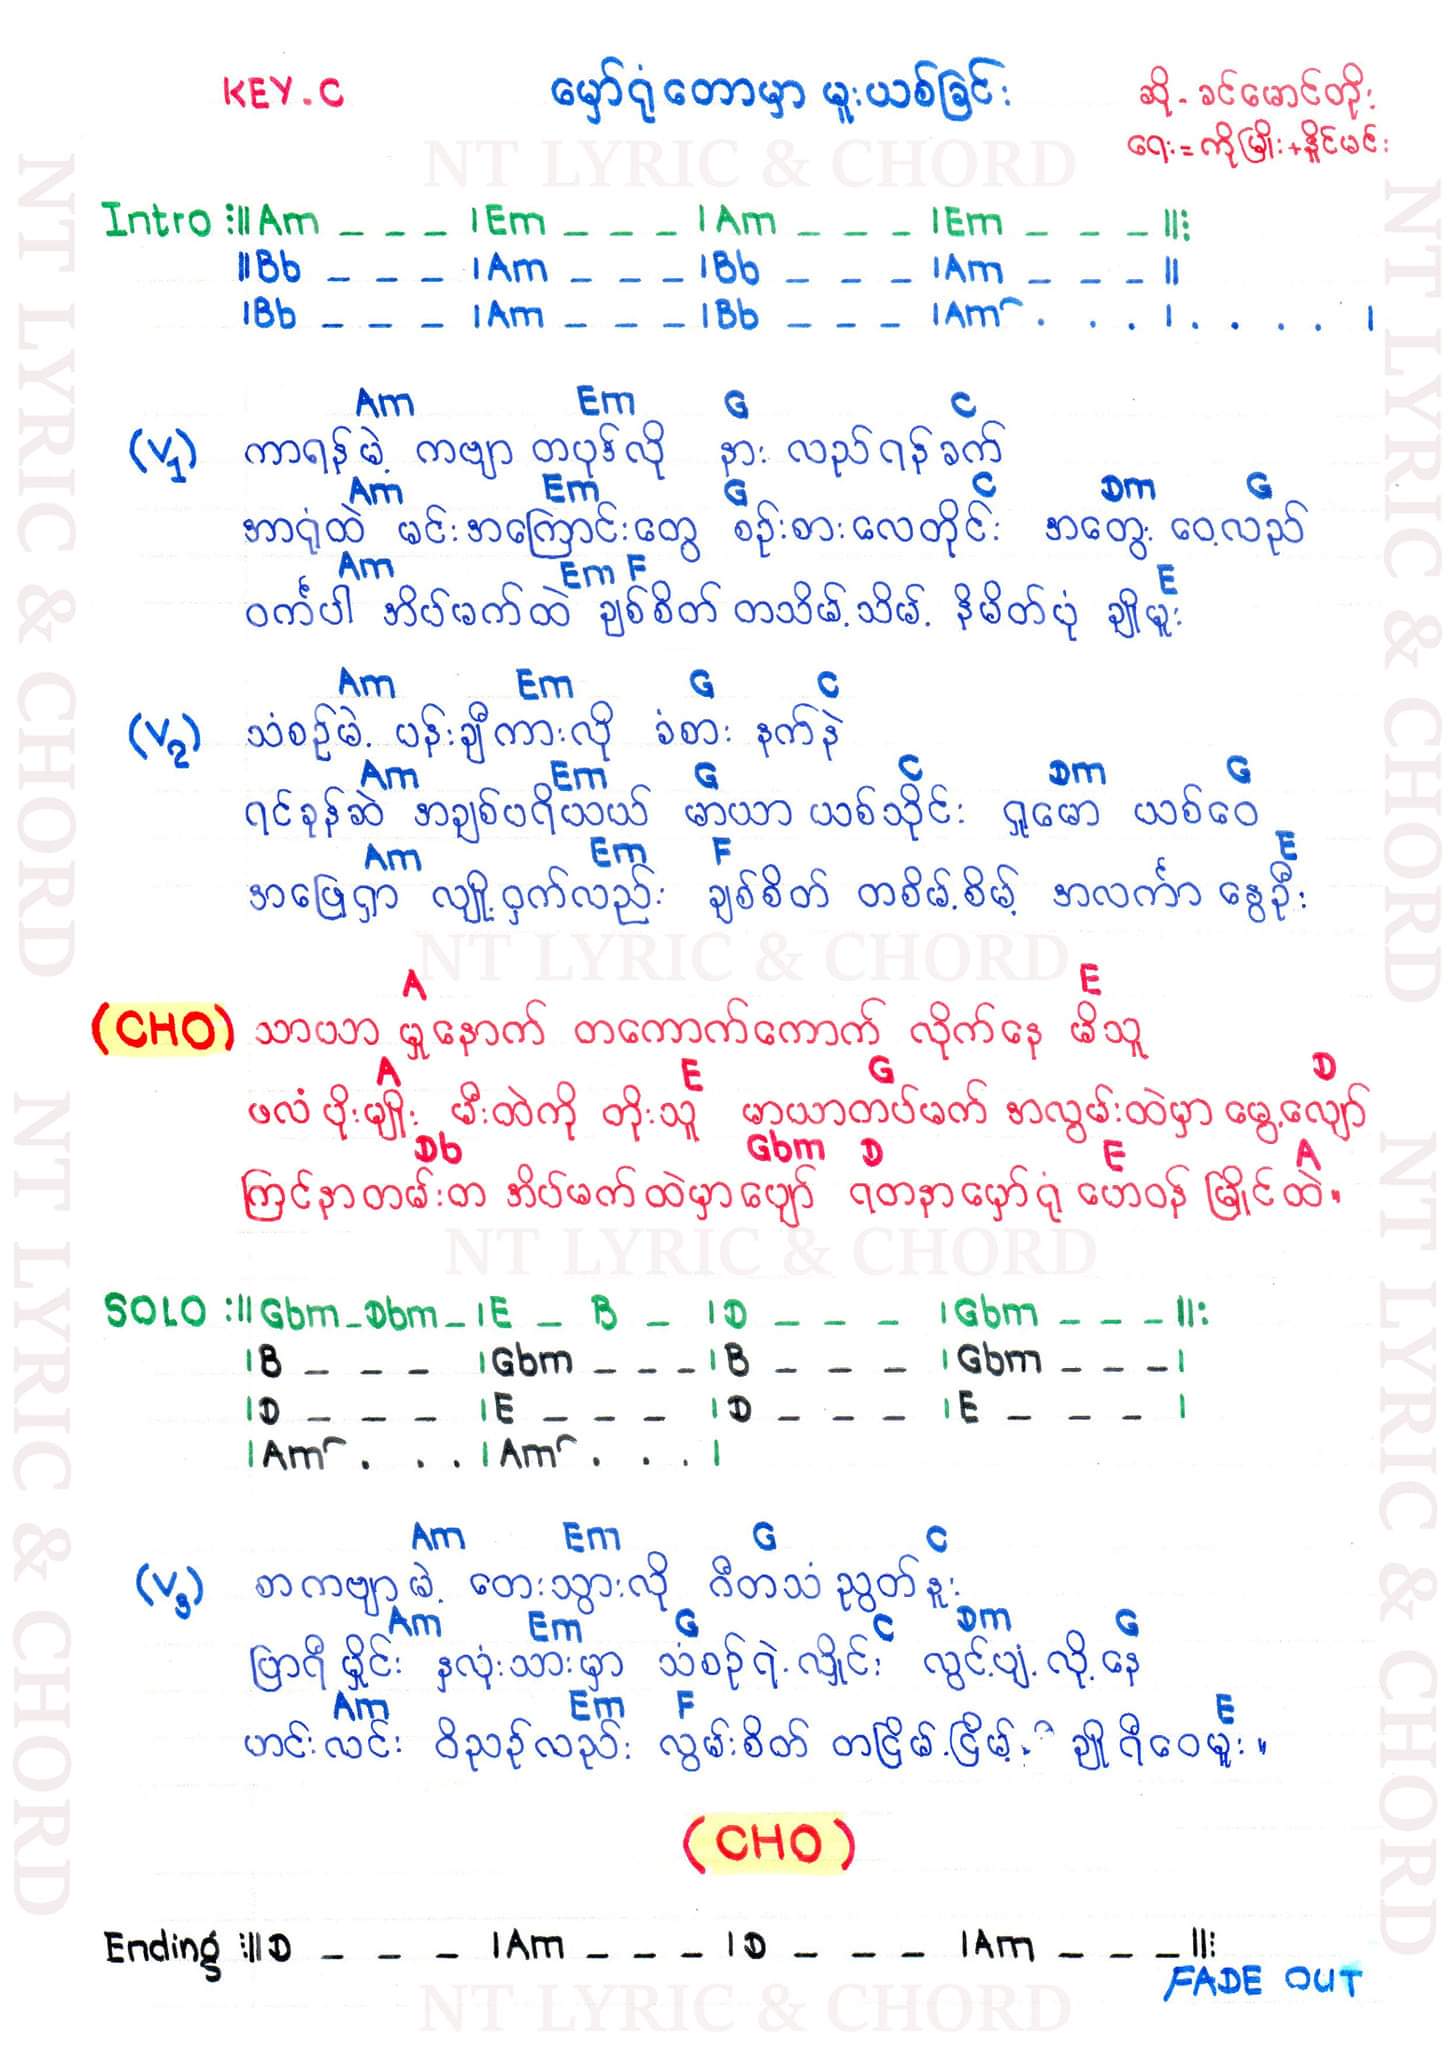 KEY.C
မှော်ရုံတောမှာ မူးယစ်ခြင်း
ဆို - ခင်မောင်တိုး
ရေး = ကိုမြိုး+နိုင်မင်း
NT LYRIC & CHORD
Intro :||Am _ _ _ |Em _ _ _ |Am _ _ _ |Em _ _ _ ||:
||Bb _ _ _ |Am _ _ _ |Bb _ _ _ |Am _ _ _ ||
|Bb _ _ _ |Am _ _ _ |Bb _ _ _ |Am . . . | . . . . |
Am Em G C
(V1) ကာရန်မဲ့ ကဗျာ တပုဒ်လို နား လည်ရန်ခက်
Am Em G C Dm G
အာရုံထဲ မင်းအကြောင်းတွေ စဉ်းစားလေတိုင်း အတွေး ဝေ့လည်
Am Em F E
ဝင်္ကပါ အိပ်မက်ထဲ ချစ်စိတ် တသိမ့်သိမ့် နိမိတ်ပုံ ချိုမူး
Am Em G C
(V2) သံစဉ်မဲ့ ပန်းချီကားလို ခံစား နက်နဲ
Am Em G C Dm G
ရင်ခုန်ဆဲ အချစ်ပရိယယ် မာယာ ယစ်သိုင်း ရှုမော ယစ်ဝေ
Am Em F E
အဖြေရှာ လျှို့ဝှက်လည်း ချစ်စိတ် တစိမ့်စိမ့် အလင်္ကာ နွေဦး
NT LYRIC & CHORD
A E
(CHO) သာယာ မှုနောက် တကောက်ကောက် လိုက်နေ မိသူ
A E G D
ဖလံ ပိုးမျိုး မီးထဲကို တိုးသူ မာယာကပ်မက် အလွမ်းထဲမှာ မွေ့လျော်
Db Gbm D E A
ကြင်နာတမ်းတ အိပ်မက်ထဲမှာပျော် ရတနာမှော်ရုံ ဟေဝန် မြိုင်ထဲ။
NT LYRIC & CHORD
SOLO :||Gbm_Dbm_|E _ B _ |D _ _ _ |Gbm _ _ _||:
|B _ _ _ |Gbm _ _ _|B _ _ _ |Gbm _ _ _|
|D _ _ _ |E _ _ _ |D _ _ _ |E _ _ _ |
|Am . . . |Am . . . |
Am Em G C
(V3) စာကဗျာမဲ့ တေးသွားလို ဂီတသံ ညွတ်နူး
Am Em G C Dm G
ပြာရီ မှိုင်း နှလုံးသားမှာ သံစဉ်ရဲ့လှိုင်း လွင့်ပျံ့လို့နေ
Am Em F E
ဟင်းလင်း ဝိညာဉ်လည်း လွမ်းစိတ် တငြိမ့်ငြိမ့် ချိုရီဝေမူး။
(CHO)
Ending :||D _ _ _ |Am _ _ _ |D _ _ _ |Am _ _ _||:
FADE OUT
NT LYRIC & CHORD
NT LYRIC & CHORD
NT LYRIC & CHORD
NT LYRIC & CHORD
NT LYRIC & CHORD